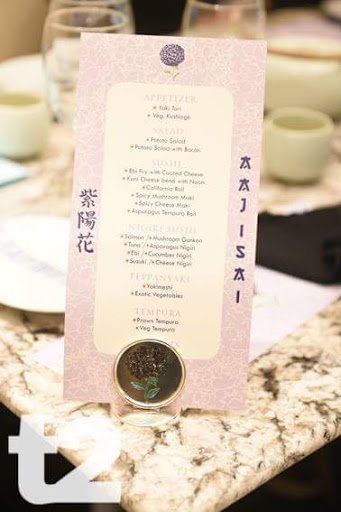 APPETIZER
Yaki Tori
Veg. Kushiage
SALAD
Potato Salad
Potato Salad with Bacon
SUSHI
Ebi Fry with Cream Cheese
Kani Cheese blend with Nori
California Roll
Spicy Mushroom Maki
Spicy Cheese Maki
Asparagus Tempura Roll
NIGIRI SUSHI
Salmon /Mushroom Gunkan
Tuna /Asparagus Nigiri
Ebi /Cucumber Nigiri
Suzuki /Cheese Nigiri
TEPPANYAKI
Yakimeshi
Exotic Vegetables
TEMPURA
Prawn Tempura
Veg Tempura
紫陽花
AAJISAI
t2